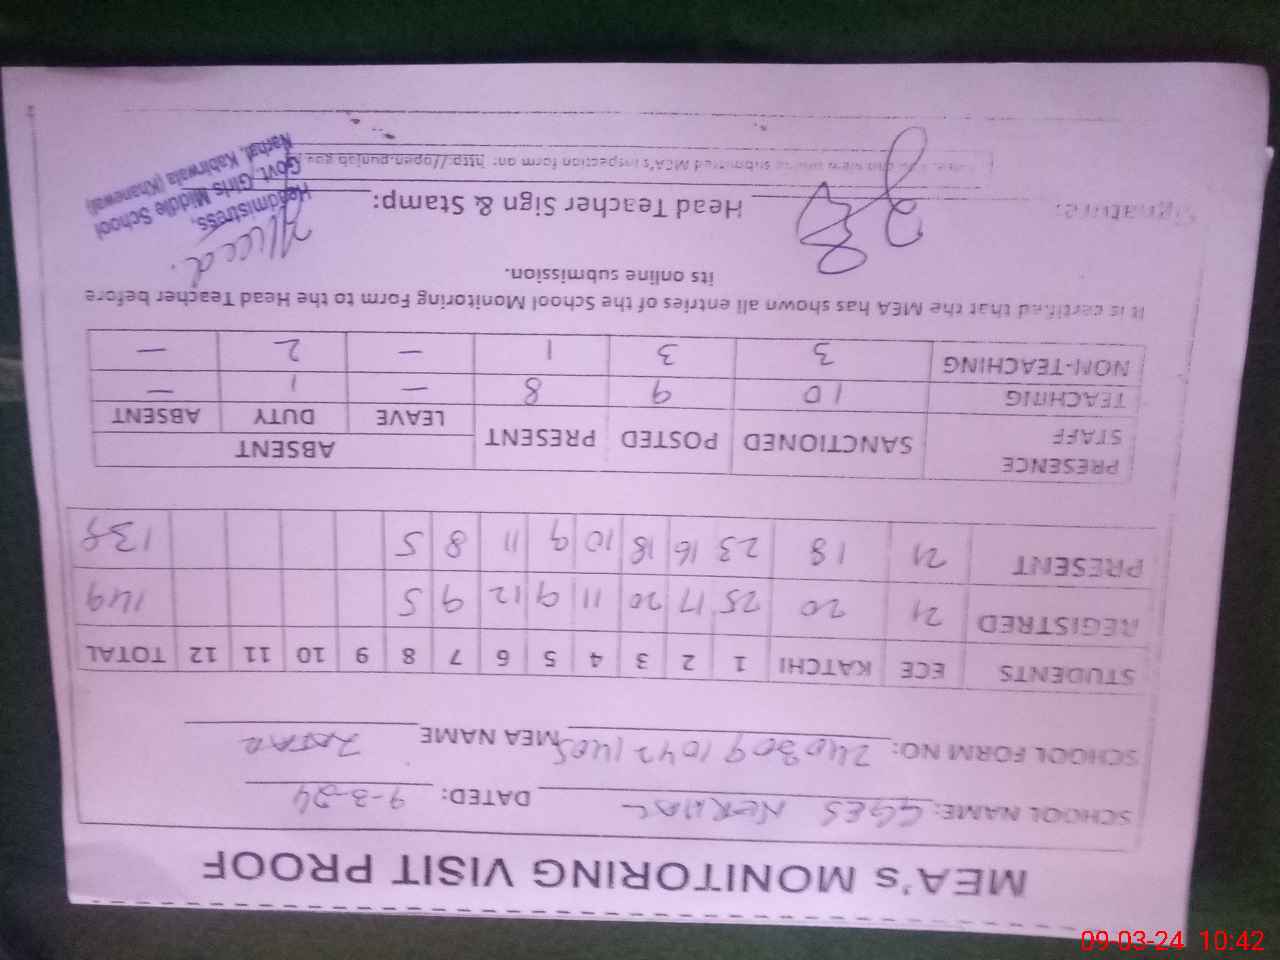 MEA's MONITORING VISIT PROOF
SCHOOL NAME: GGES NERHAL DATED: 9-3-24
SCHOOL FORM NO: 24030910421405 MEA NAME ZAFAR
STUDENTS ECE KATCHI 1 2 3 4 5 6 7 8 9 10 11 12 TOTAL
REGISTRED 21 20 25 17 20 11 9 12 9 5 149
PRESENT 21 18 23 16 18 10 9 11 8 5 139
PRESENCE STAFF SANCTIONED POSTED PRESENT ABSENT
LEAVE DUTY ABSENT
TEACHING 10 9 8 - 1 -
NON-TEACHING 3 3 1 - 2 -
It is certified that the MEA has shown all entries of the School Monitoring Form to the Head Teacher before
its online submission.
Signature: Head Teacher Sign & Stamp:
Headmistress,
Govt. Girls Middle School
Narhal, Kabirwala (Khanewal)
view submitted MEA's inspection form on: http://open.punjab.gov
09-03-24 10:42